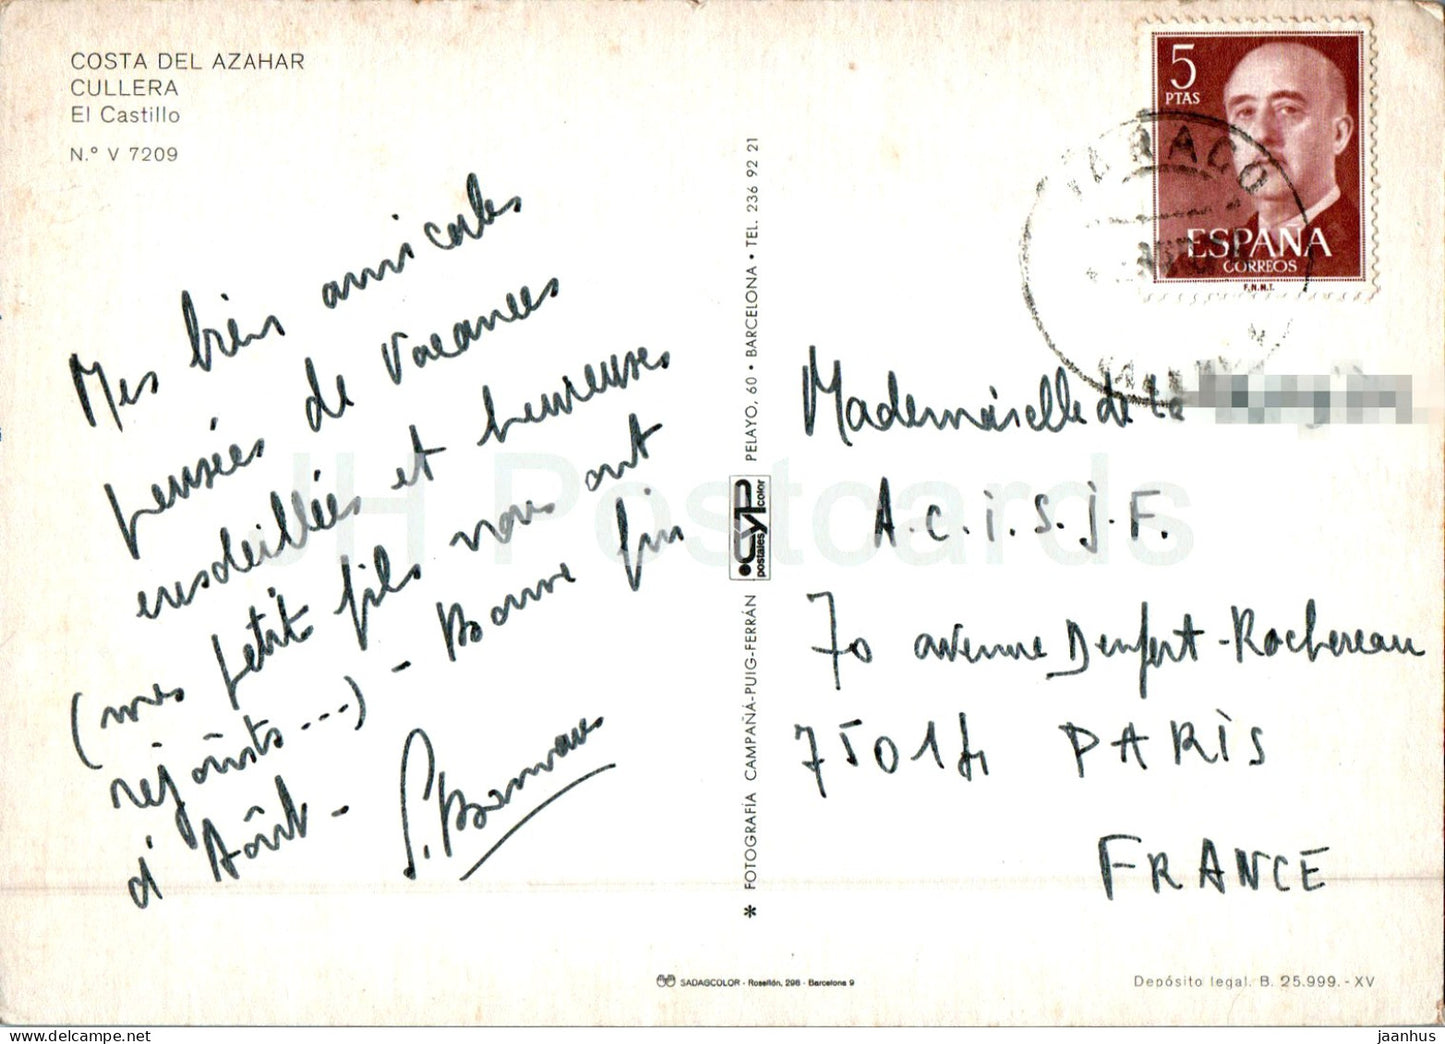 COSTA DEL AZAHAR
CULLERA
El Castillo
N.º V 7209
Mes bien amicales
pensées de vacances
ensoleillées et heureuses
(mes petits fils nous ont
rejoints...) - Bonne fin
d'Août -
5
PTAS
ESPAÑA
CORREOS
F.N.M.T.
Mademoiselle de La
A.C.I.S.J.F.
70 avenue Denfert-Rochereau
75014 PARIS
FRANCE
* FOTOGRAFÍA CAMPAÑÁ-PUIG-FERRÁN
CYP
postales color
PELAYO, 60 • BARCELONA • TEL. 236 92 21
SADAGCOLOR - Rosellón, 298 - Barcelona 9
Depósito legal. B. 25.999.-XV
JH Postcards
jaanhus © Delcampe.net